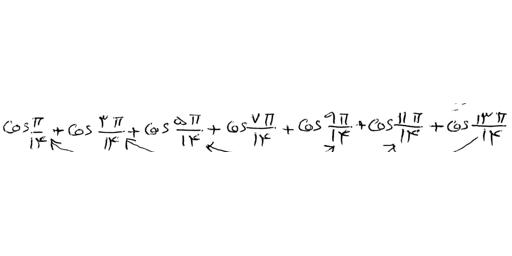 cos π/۱۴ + cos ۳π/۱۴ + cos ۵π/۱۴ + cos ۷π/۱۴ + cos ۹π/۱۴ + cos ۱۱π/۱۴ + cos ۱۳π/۱۴